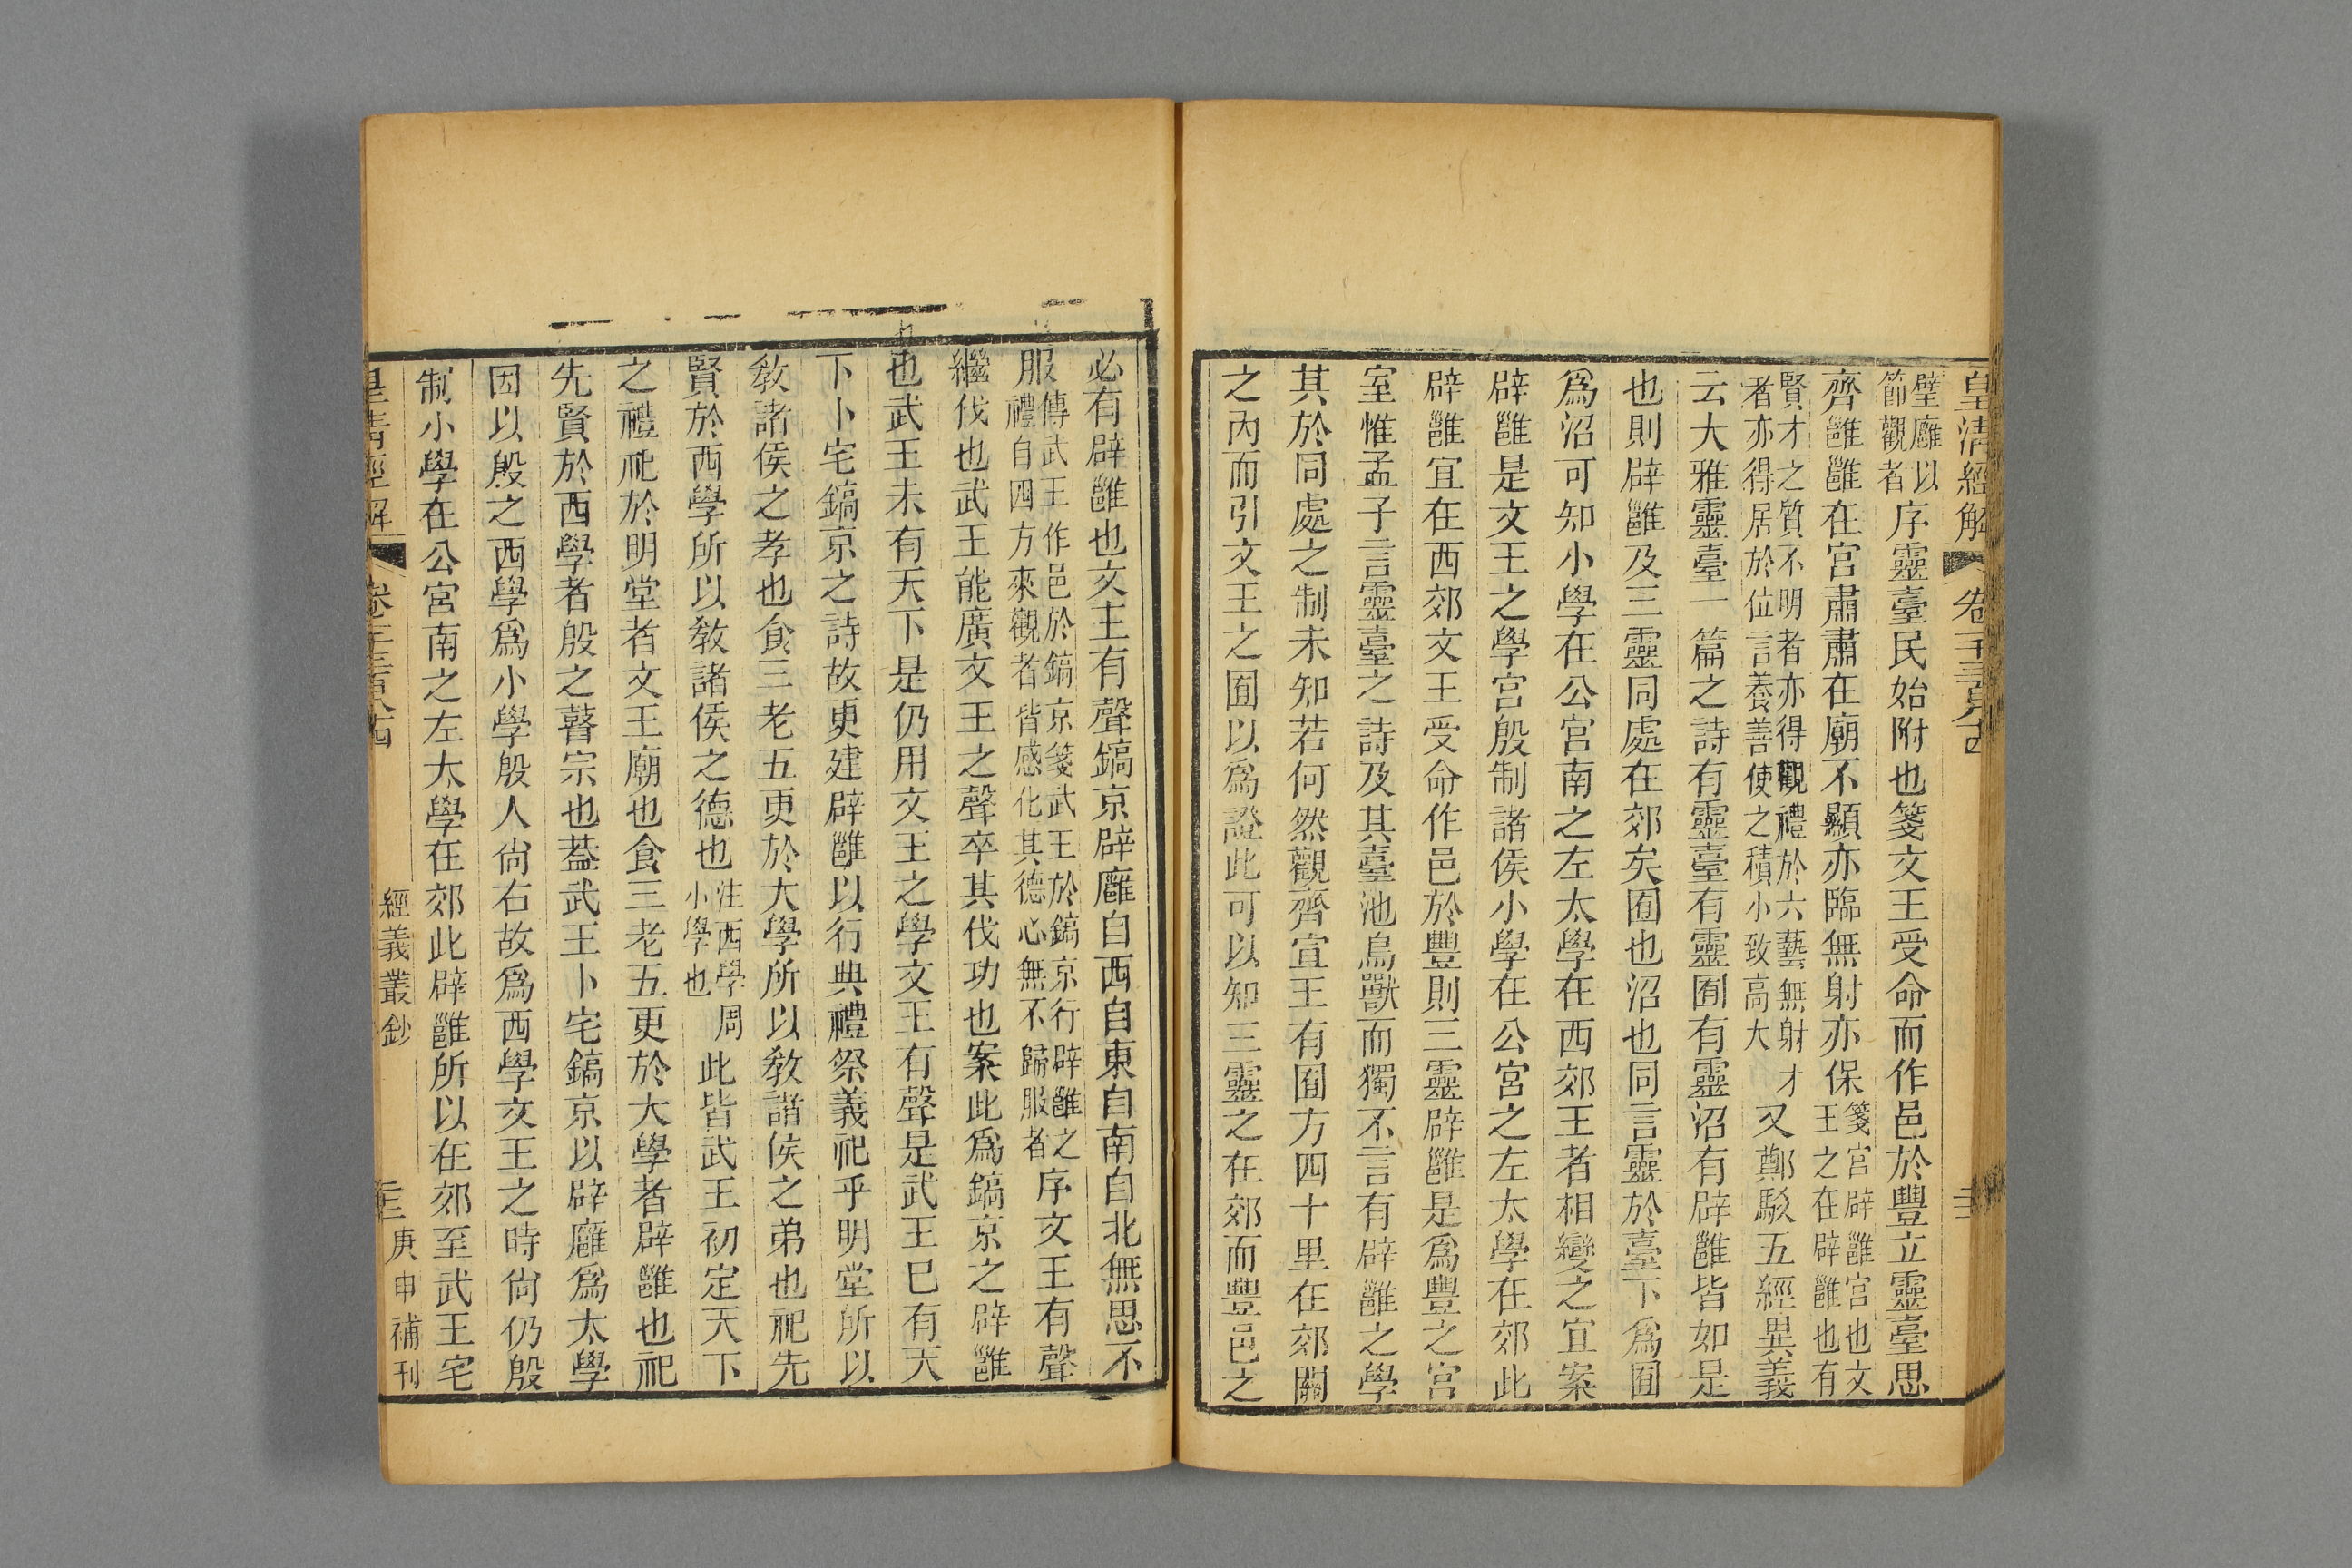 皇清經解
璧廱以
節觀者
序靈臺民始附也箋文王受命而作邑於豐立靈臺思
齊雝雝在宮肅肅在廟不顯亦臨無射亦保
箋宮辟雝宮也文
王之在辟雝也有
賢才之質不明者亦得觀禮於六藝無射才
者亦得居於位言養善使之積小致高大
又鄭駁五經異義
云大雅靈臺一篇之詩有靈臺有靈囿有靈沼有辟雝皆如是
也則辟雝及三靈同處在郊矣囿也沼也同言靈於臺下爲囿
爲沼可知小學在公宮南之左太學在西郊王者相變之宜案
辟雝是文王之學宮殷制諸侯小學在公宮之左太學在郊此
辟雝宜在西郊文王受命作邑於豐則三靈辟雝是爲豐之宮
室惟孟子言靈臺之詩及其臺池鳥獸而獨不言有辟雝之學
其於同處之制未知若何然觀齊宣王有囿方四十里在郊關
之內而引文王之囿以爲證此可以知三靈之在郊而豐邑之
必有辟雝也文王有聲鎬京辟廱自西自東自南自北無思不
服
傳武王作邑於鎬京箋武王於鎬京行辟雝之
禮自四方來觀者皆感化其德心無不歸服者
序文王有聲
繼伐也武王能廣文王之聲卒其伐功也案此爲鎬京之辟雝
也武王未有天下是仍用文王之學文王有聲是武王巳有天
下卜宅鎬京之詩故更建辟雝以行典禮祭義祀乎明堂所以
敎諸侯之孝也食三老五更於大學所以敎諸侯之弟也祀先
賢於西學所以敎諸侯之德也
注西學周
小學也
此皆武王初定天下
之禮祀於明堂者文王廟也食三老五更於大學者辟雝也祀
先賢於西學者殷之瞽宗也葢武王卜宅鎬京以辟廱爲太學
因以殷之西學爲小學殷人尙右故爲西學文王之時尙仍殷
制小學在公宮南之左太學在郊此辟雝所以在郊至武王宅
皇清經解
經義叢鈔
庚申補刊